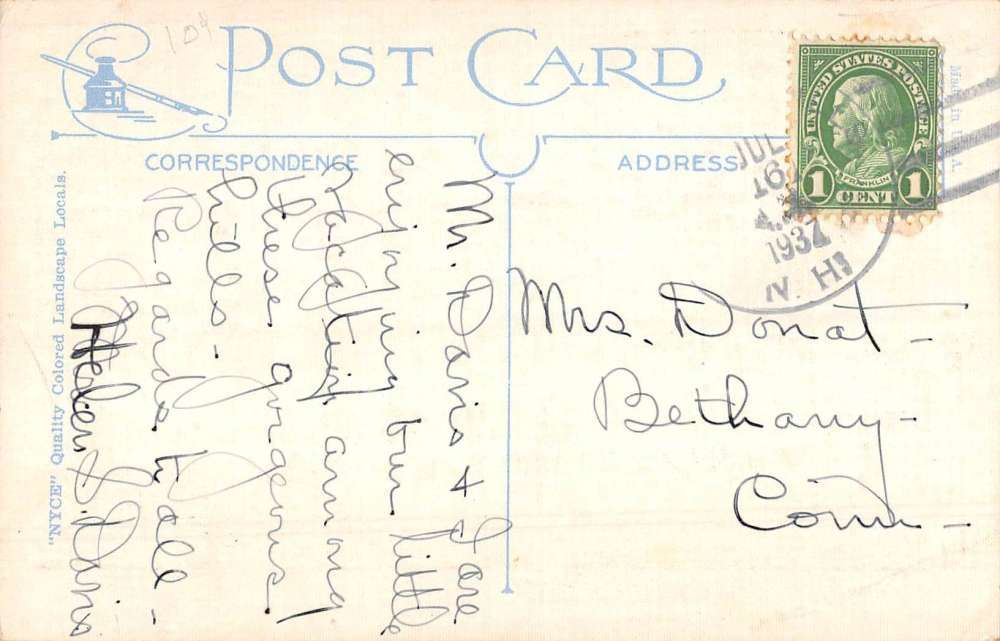 104
POST CARD
CORRESPONDENCE
ADDRESS
Made in U.S.A.
UNITED STATES POSTAGE
FRANKLIN
1 CENT 1
JUL
16
A.M.
1934
N. H.
Mr. Davis & I are
enjoying our little
vacation among
these gorgeous
hills.
Regards to all -
Helen S. Davis
Mrs. Donat -
Bethany -
Conn -
"NYCE" Quality Colored Landscape Locals.